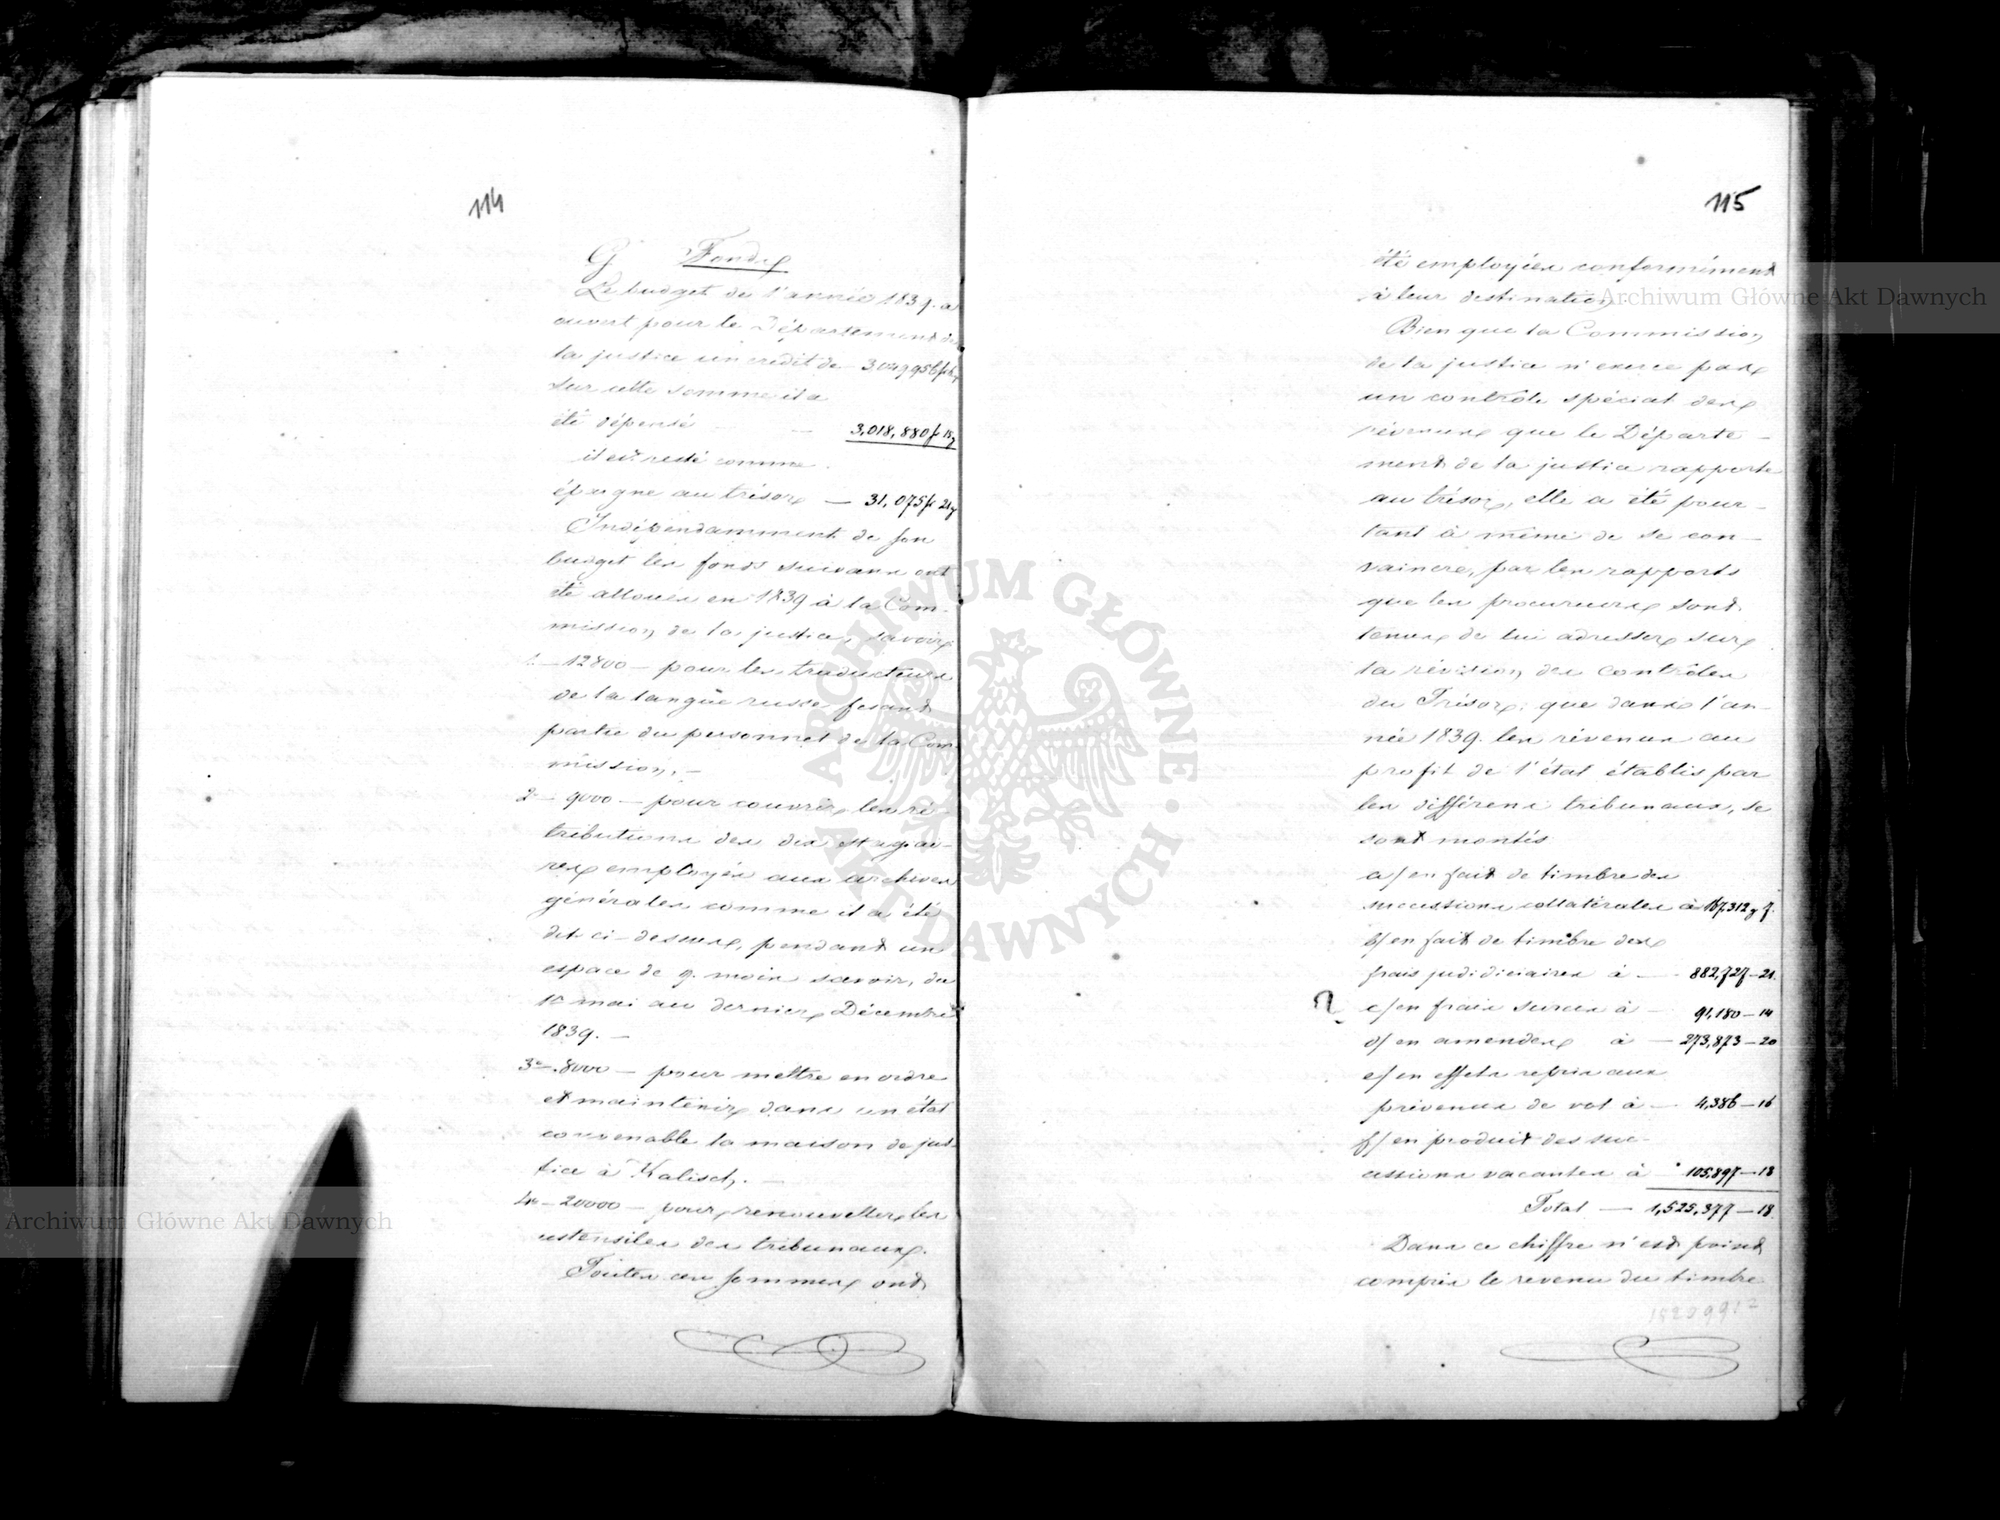 114
G Fonds
Le budget de l'année 1839. a
ouvert pour le Département de
la justice un crédit de 3,049,956 f
sur cette somme il a
été dépensé — 3,018,880 f 15 g
il est resté comme
épargne au trésor — 31,075 f 21 g
Indépendamment de son
budget les fonds suivans ont
été alloués en 1839 à la Com-
mission de la justice, savoir,
1. — 12800 — pour les traducteurs
de la langue russe fesant
partie du personnel de la Com-
mission. —
2° — 9000 — pour couvrir les ré-
tributions des dix stagiai-
res employés aux archives
générales comme il a été
dit ci-dessus, pendant un
espace de 9. mois savoir, du
1r mai au dernier Décembre
1839. —
3° — 8000 — pour mettre en ordre
et maintenir dans un état
convenable la maison de jus-
tice à Kalisch. —
4° — 20000 — pour renouveller les
ustensiles des tribunaux.
Toutes ces sommes ont
115
été employées conformément
à leur destination
Bien que la Commission
de la justice n'exerce pas
un contrôle spécial des
révenus que le Départe-
ment de la justice rapporte
au trésor, elle a été pour-
tant à même de se con-
vaincre, par les rapports
que les procureurs sont
tenus de lui adresser sur
la révision des contrôles
du Trésor, que dans l'an-
née 1839. les révenus au
profit de l'état établis par
les différens tribunaux, se
sont montés
a/ en fait de timbre des
successions collatérales à 167,312 g 7.
b/ en fait de timbre des
frais judidiciaires à — 882,727 — 21.
? c/ en frais surcus à — 91,180 — 14
d/ en amendes à — 273,873 — 20
e/ en effets repris aux
prévenus de vol à — 4,386 — 16
f/ en produit des suc-
cessions vacantes à 105,897 — 18
Total — 1,525,377 — 18.
Dans ce chiffre n'est point
compris le revenu du timbre
Archiwum Główne Akt Dawnych
ARCHIWUM GŁÓWNE · AKT DAWNYCH ·
Archiwum Główne Akt Dawnych